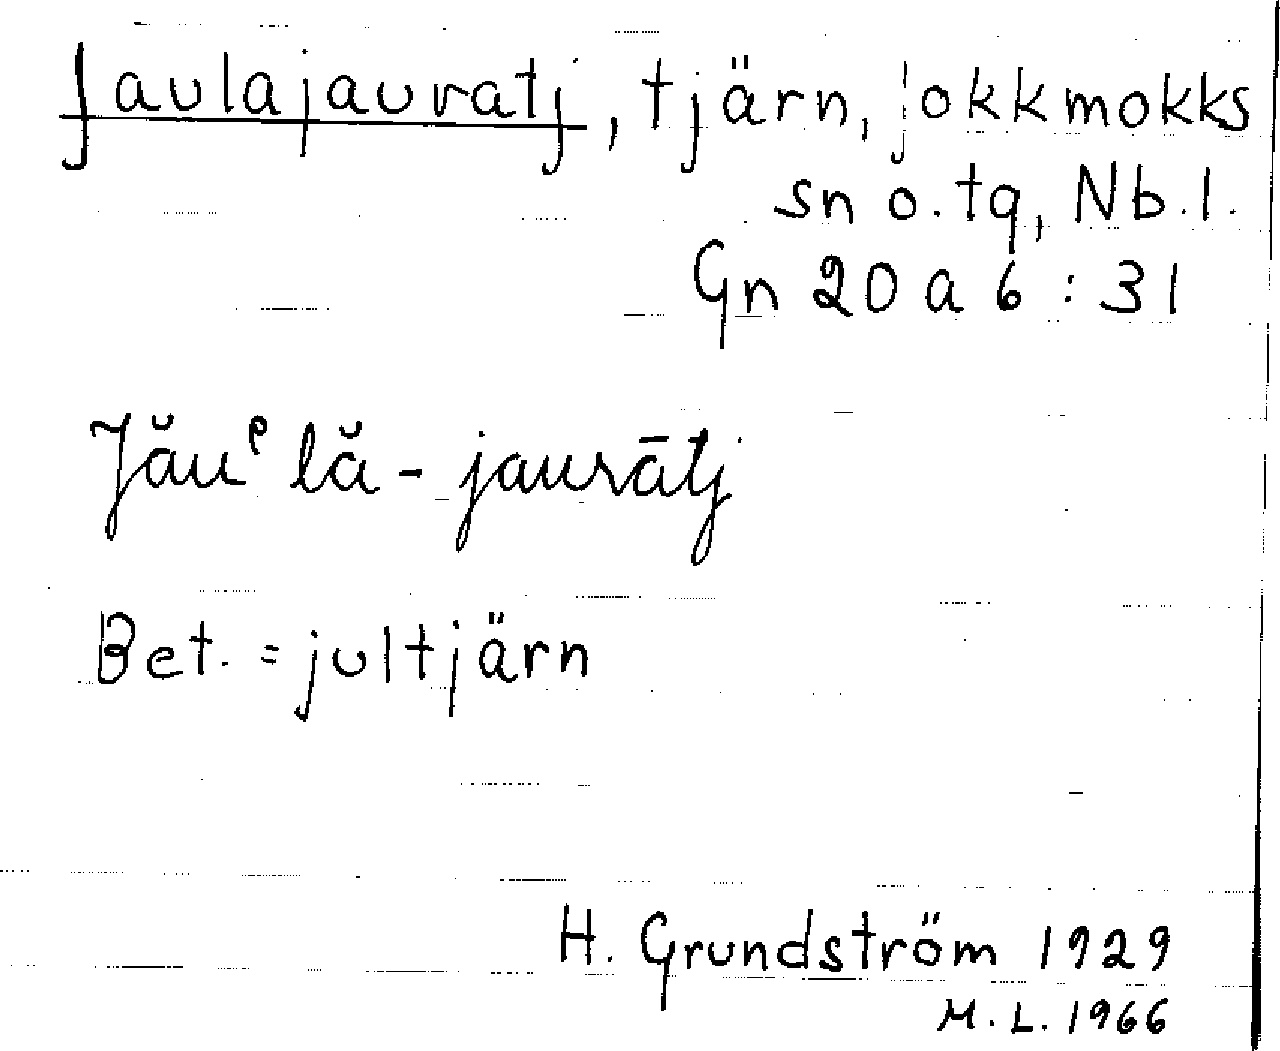 Jaulajauratj, tjärn, jokkmokks
sn o. tg, Nb. l.
Gn 20 a 6 : 31
Jău ͤ lă - jaurātj
Bet. = jultjärn
H. Grundström 1929
M. L. 1966